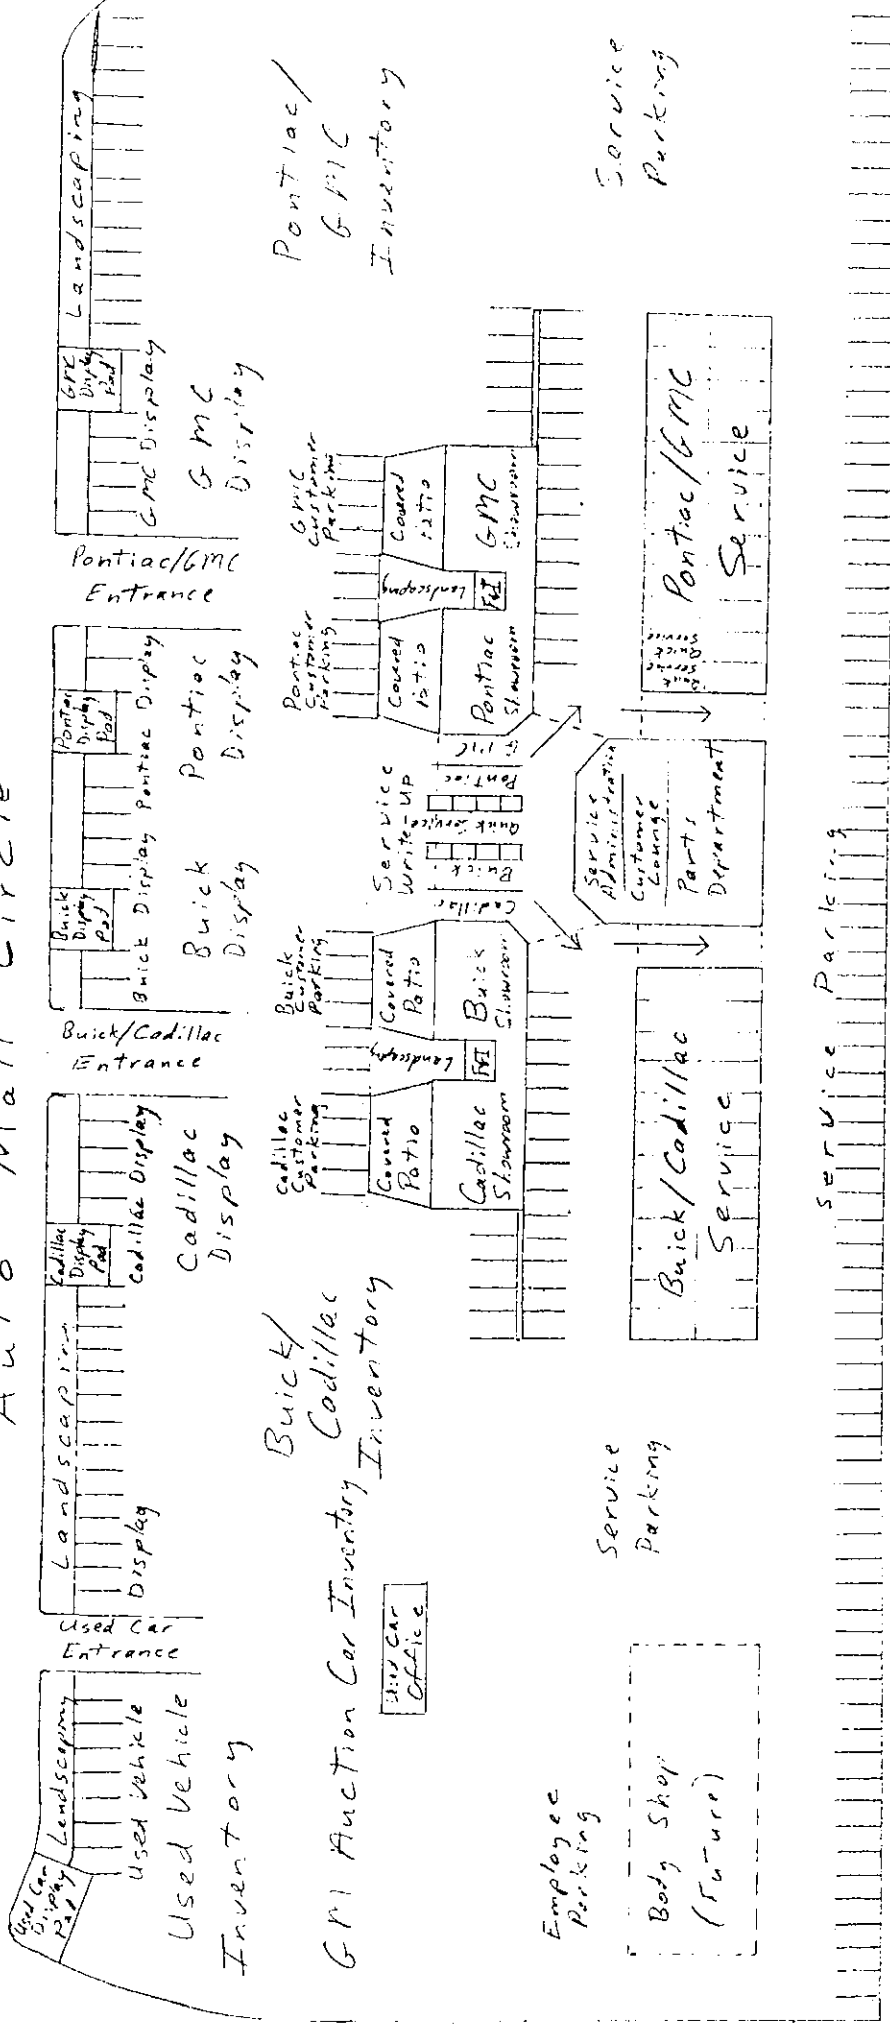 Auto Mall Circle
Used Car
Display
Pad
Landscaping
Used Vehicle
Used Vehicle
Inventory
Used Car
Entrance
Landscaping
Display
Cadillac
Display
Pad
Cadillac Display
Cadillac
Display
Buick/Cadillac
Entrance
Buick
Display
Pad
Buick Display
Buick
Display
Pontiac
Display
Pad
Pontiac Display
Pontiac
Display
Pontiac/GMC
Entrance
GMC
Display
Pad
GMC Display
GMC
Display
Landscaping
GM Auction Car Inventory
Used Car
Office
Buick/
Cadillac
Inventory
Cadillac
Customer
Parking
Covered
Patio
Cadillac
Showroom
Landscaping
F&I
Buick
Customer
Parking
Covered
Patio
Buick
Showroom
Service
Write-Up
Cadillac
Buick
Quick Service
Pontiac
GMC
Pontiac
Customer
Parking
Covered
Patio
Pontiac
Showroom
Landscaping
F&I
GMC
Customer
Parking
Covered
Patio
GMC
Showroom
Pontiac/
GMC
Inventory
Employee
Parking
Body Shop
(Future)
Service
Parking
Buick/Cadillac
Service
Service
Administration
Customer
Lounge
Parts
Department
Quick
Service
Pontiac/GMC
Service
Service
Parking
Service Parking